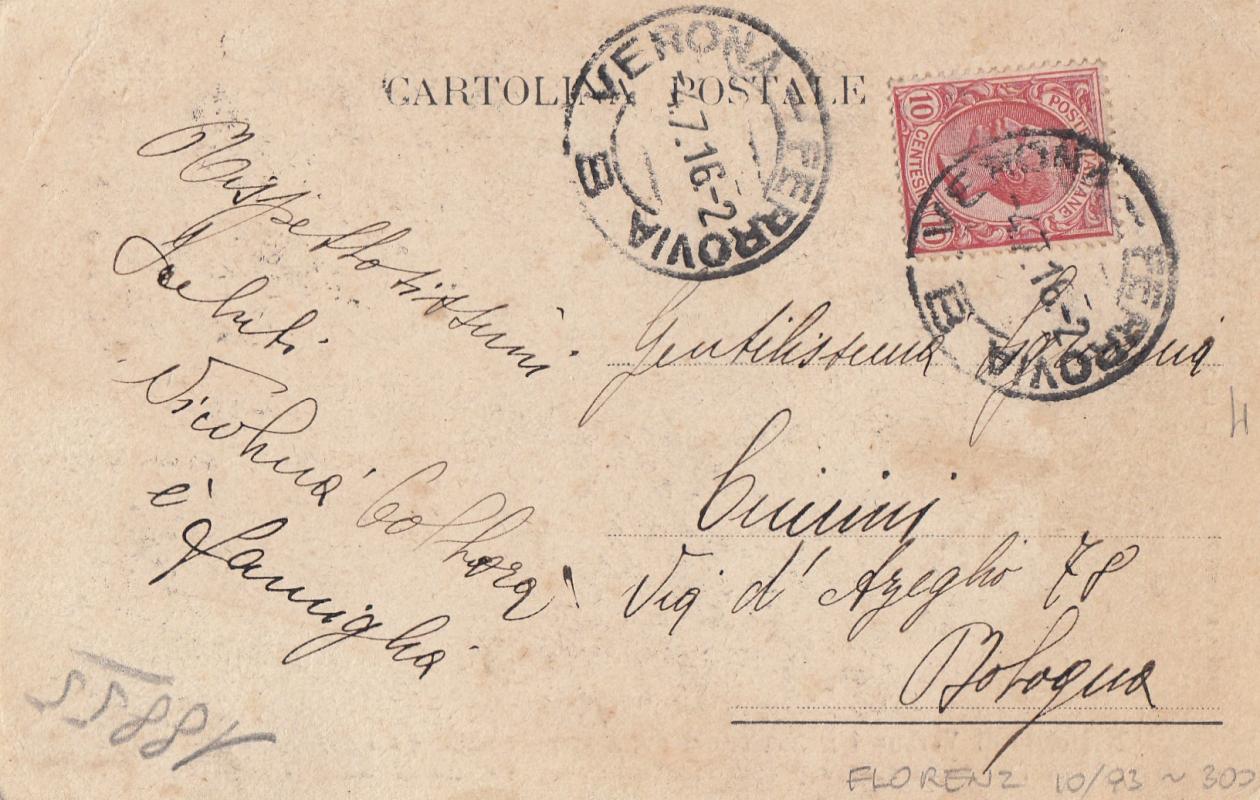 CARTOLINA POSTALE
VERONA - FERROVIA
7.16-2
B
POSTE ITALIANE
10 CENTESIMI 10
VERONA - FERROVIA
16-2
B
Rispettosissimi
Saluti
e famiglia
Gentilissima Signorina
Via d'Azeglio 78
Bologna
FLORENZ 10/93 ~ 300